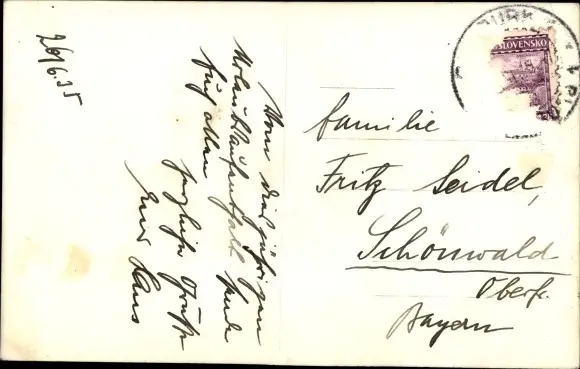 26/6.35
Vom diesjährigen
Urlaubsaufenthalt sende
Euch allen
herzliche Grüße
Euer Hans
Familie
Fritz Seidel,
Schönwald
Oberfr.
Bayern
SLOVENSKO